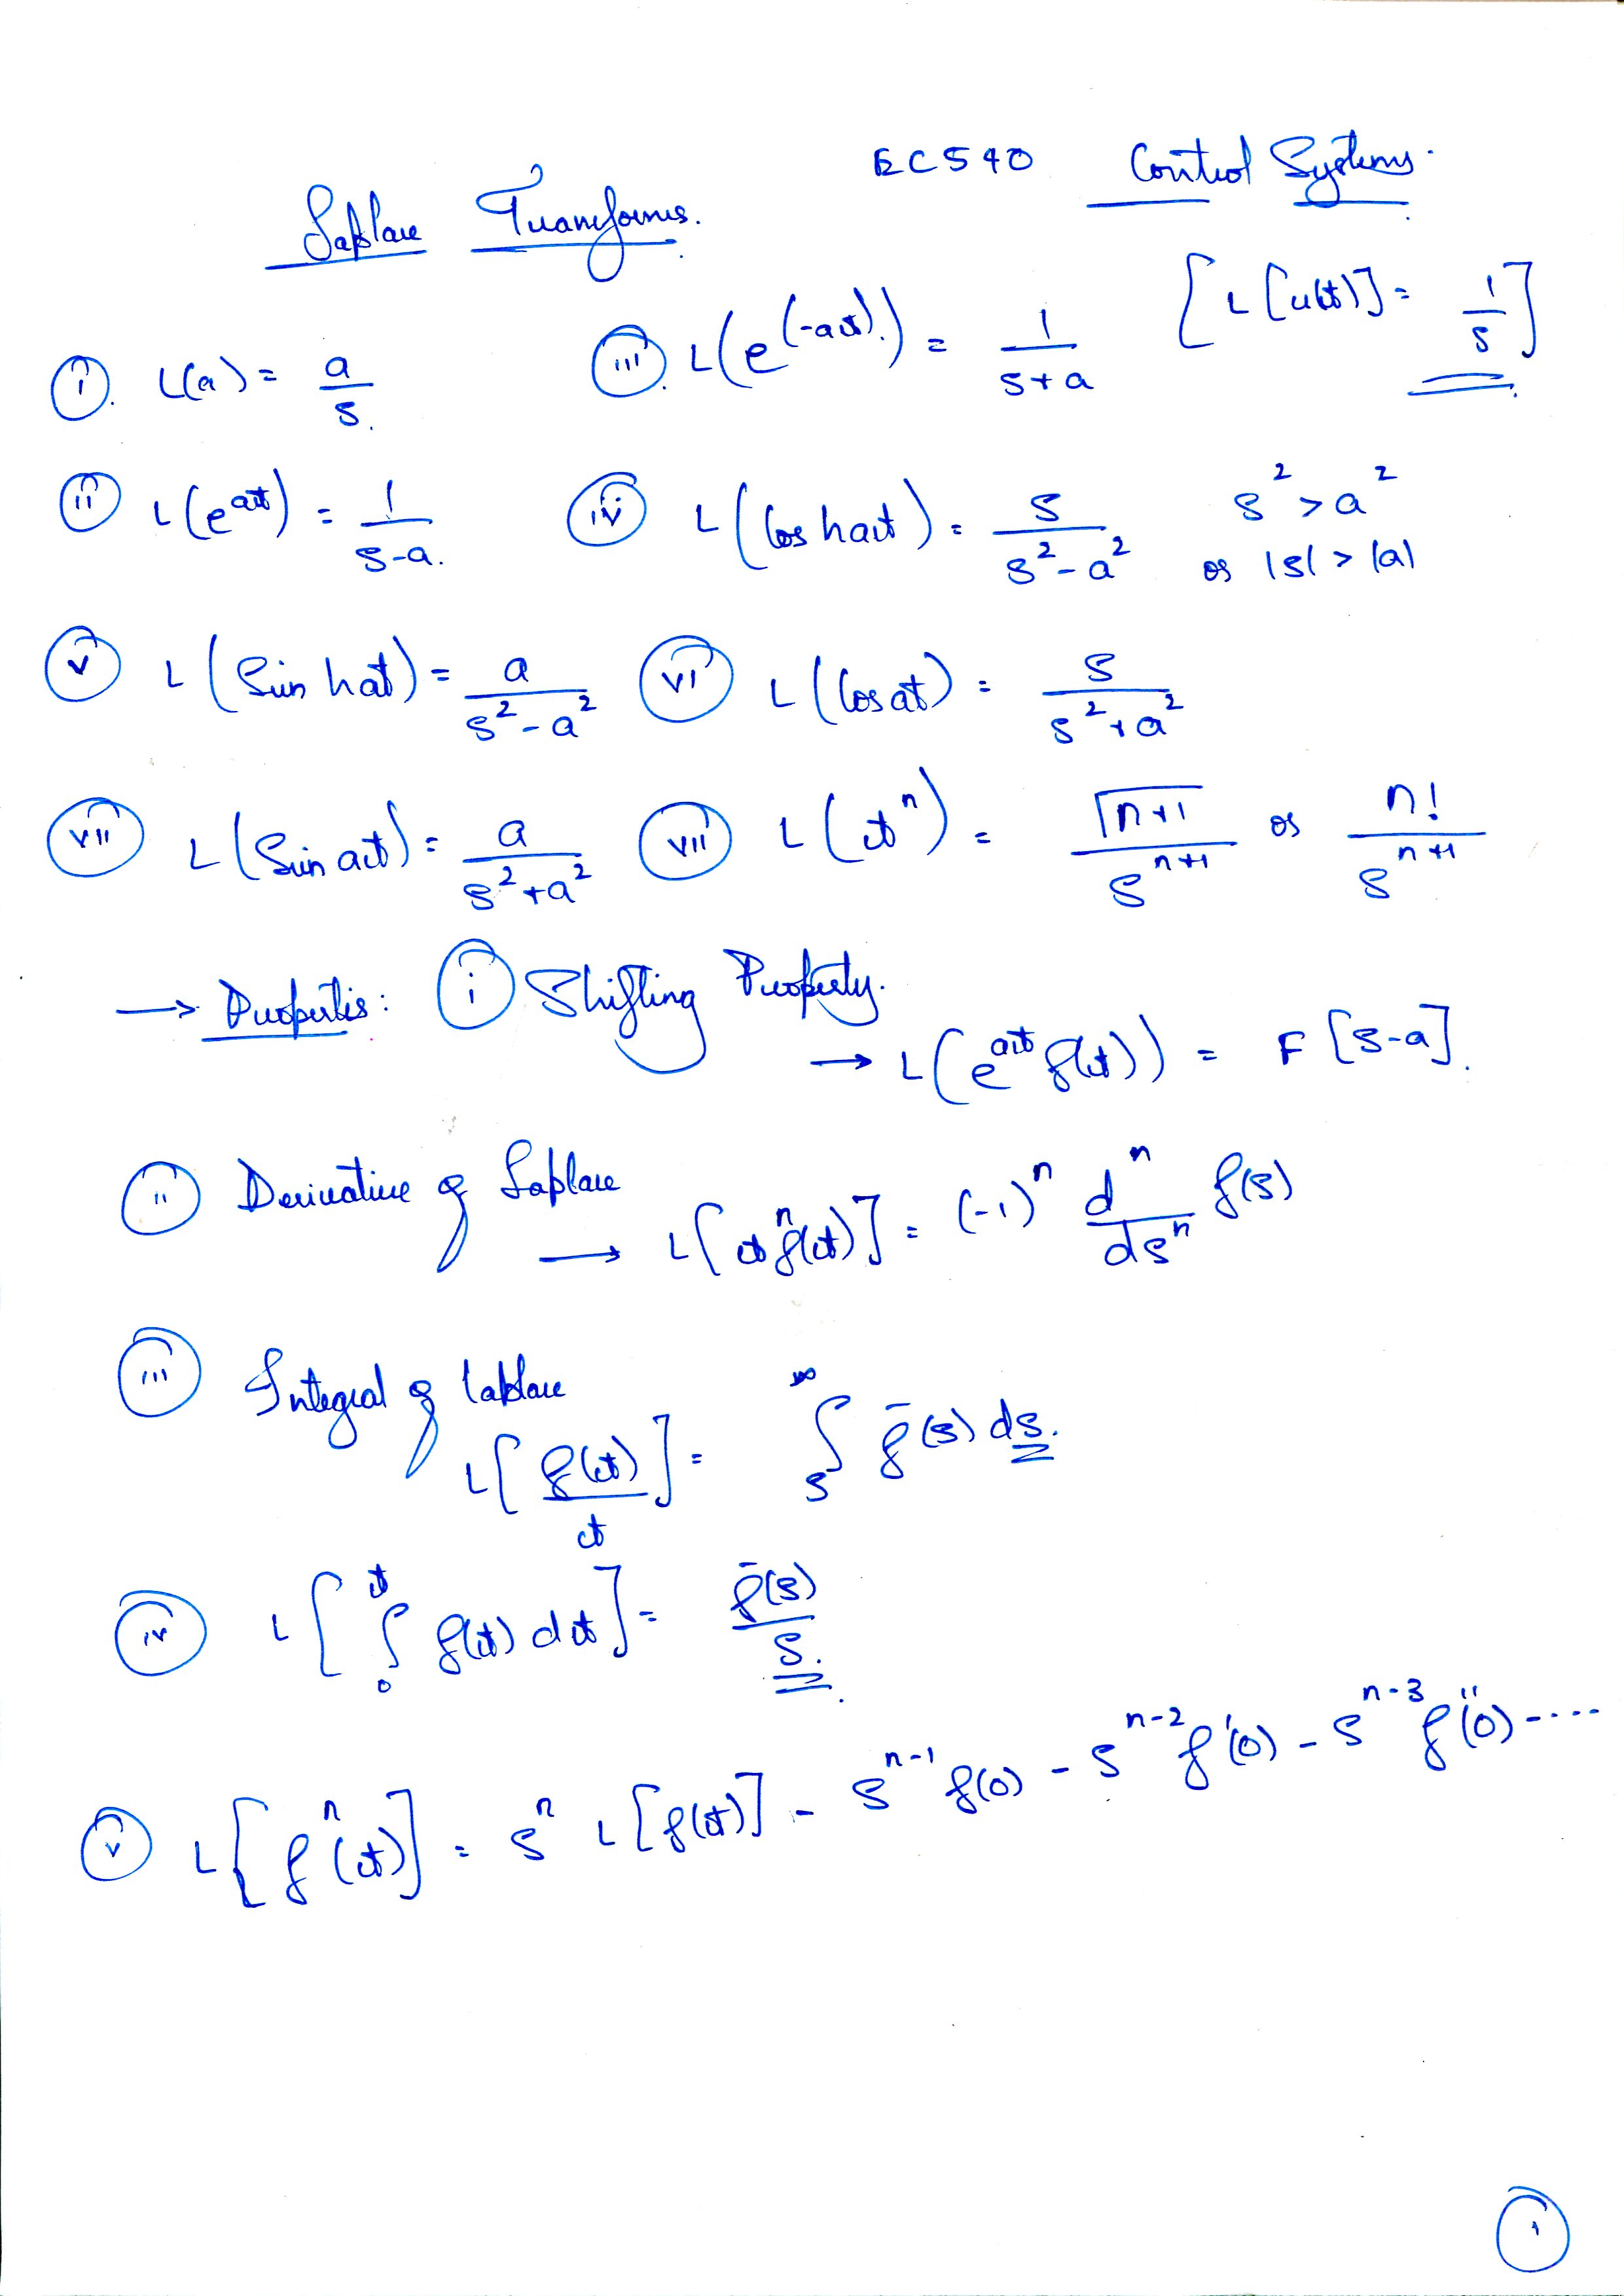 EC540 Control Systems.
Laplace Transforms.
[L[u(t)] = 1/s]
(i). L(a) = a/s. (iii). L(e^(-at)) = 1/(s+a)
(ii) L(e^at) = 1/(s-a). (iv) L(Cos hat) = s/(s^2-a^2) s^2 > a^2 or |s| > |a|
(v) L(Sin hat) = a/(s^2-a^2) (vi) L(Cos at) = s/(s^2+a^2)
(vii) L(Sin at) = a/(s^2+a^2) (vii) L(t^n) = Γn+1/s^(n+1) or n!/s^(n+1)
→ Properties: (i) Shifting Property.
→ L(e^at f(t)) = F[s-a].
(ii) Derivative of Laplace
→ L[t^n f(t)] = (-1)^n d^n/ds^n f(s)
(iii) Integral of Laplace
L[f(t)/t] = ∫_s^∞ f̄(s) ds.
(iv) L[∫_0^t f(t) dt] = f̄(s)/s.
(v) L[f^n(t)] = s^n L[f(t)] - s^(n-1) f(0) - s^(n-2) f'(0) - s^(n-3) f''(0) ----
(1)